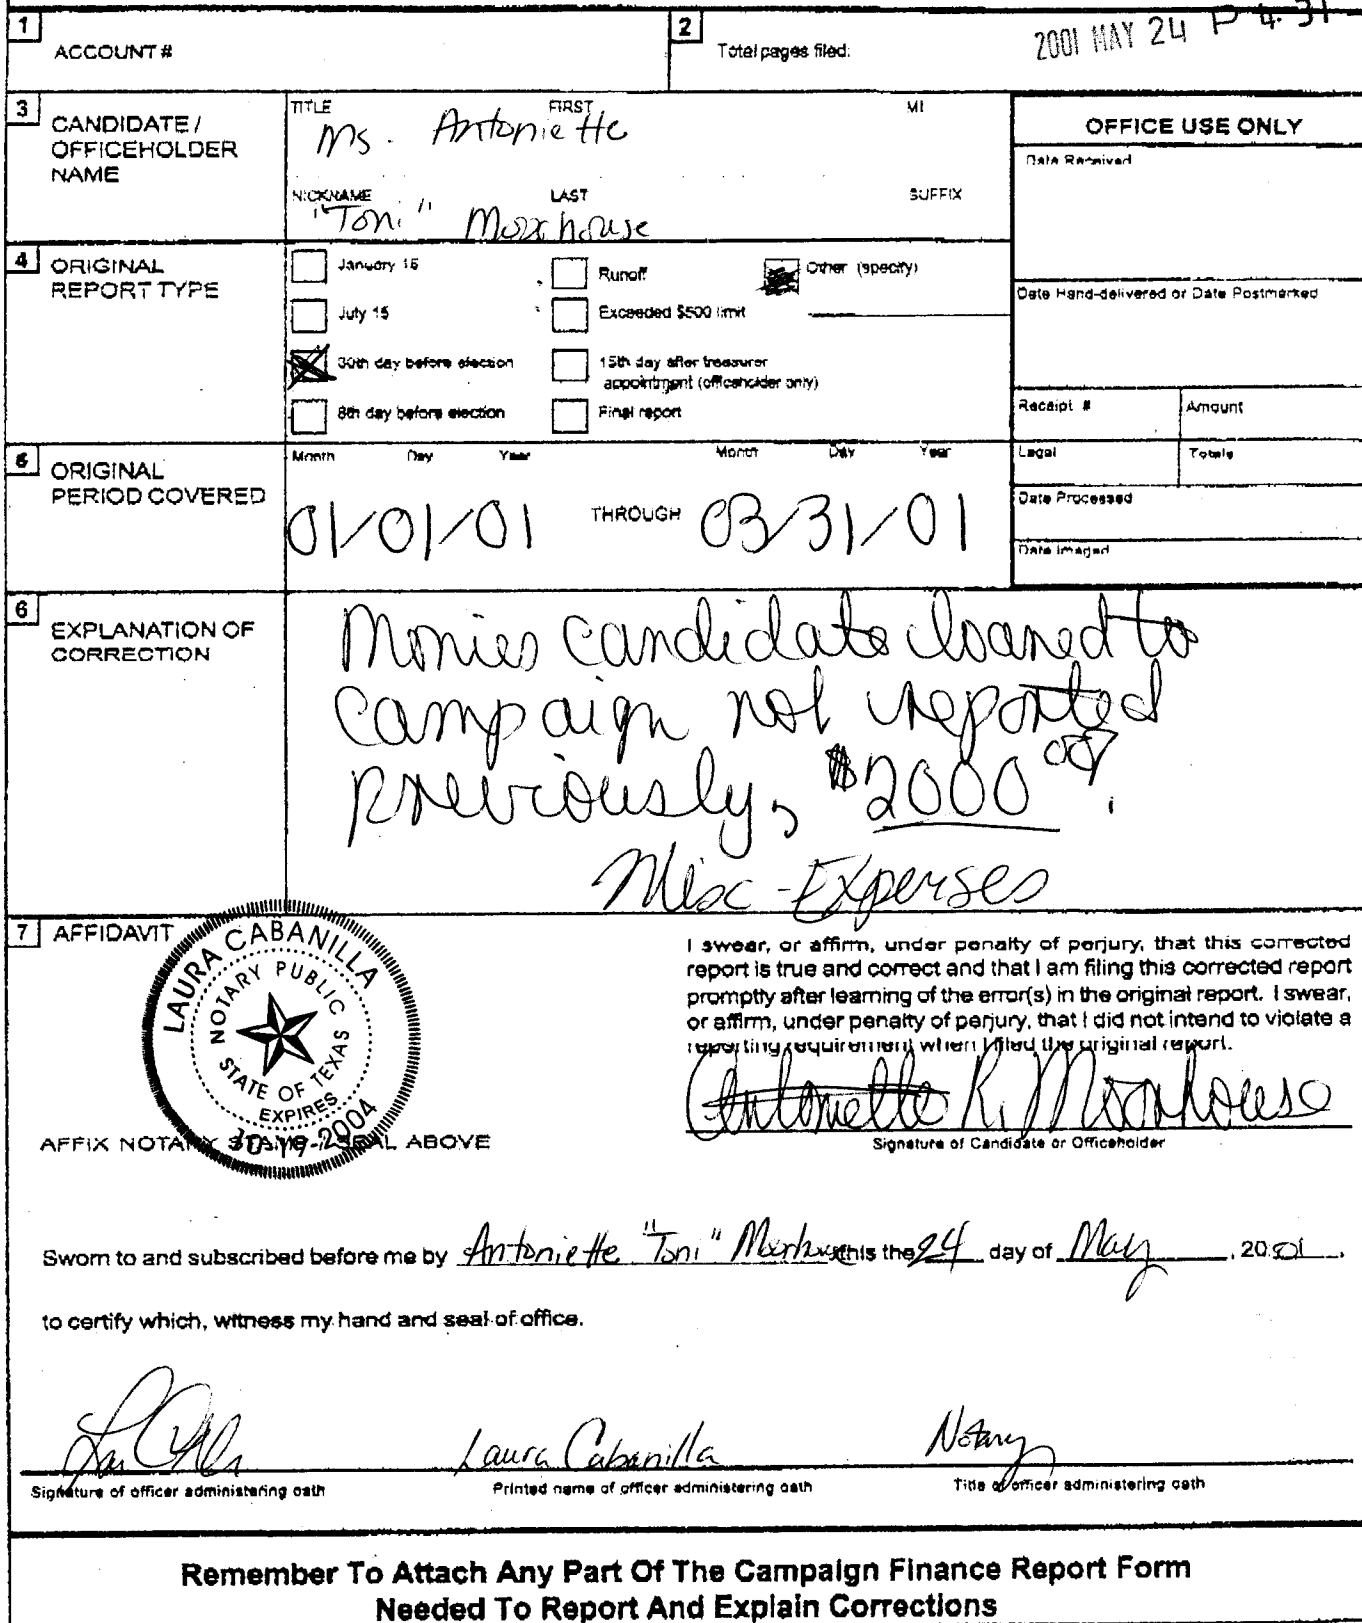 1 ACCOUNT #
2 Total pages filed:
2001 MAY 24 P 4:31
3 CANDIDATE / OFFICEHOLDER NAME
TITLE FIRST MI
Ms. Antoniette
NICKNAME LAST SUFFIX
"Toni" Moorhouse
OFFICE USE ONLY
Date Received
Date Hand-delivered or Date Postmarked
Receipt # Amount
Legal Totals
Date Processed
Date Imaged
4 ORIGINAL REPORT TYPE
January 15 Runoff Other (specify)
July 15 Exceeded $500 limit
30th day before election 15th day after treasurer
appointment (officeholder only)
8th day before election Final report
5 ORIGINAL PERIOD COVERED
Month Day Year Month Day Year
01/01/01 THROUGH 03/31/01
6 EXPLANATION OF CORRECTION
Monies candidate loaned to
campaign not reported
previously, $2000 00.
Misc - Expenses
7 AFFIDAVIT
LAURA CABANILLA
NOTARY PUBLIC
STATE OF TEXAS
EXPIRES
10-19-2004
AFFIX NOTARY STAMP / SEAL ABOVE
I swear, or affirm, under penalty of perjury, that this corrected
report is true and correct and that I am filing this corrected report
promptly after learning of the error(s) in the original report. I swear,
or affirm, under penalty of perjury, that I did not intend to violate a
reporting requirement when I filed the original report.
Antoniette R. Moorhouse
Signature of Candidate or Officeholder
Sworn to and subscribed before me by Antoniette "Toni" Moorhouse this the 24 day of May, 2001,
to certify which, witness my hand and seal of office.
Laura Cabanilla Notary
Signature of officer administering oath Printed name of officer administering oath Title of officer administering oath
Remember To Attach Any Part Of The Campaign Finance Report Form
Needed To Report And Explain Corrections